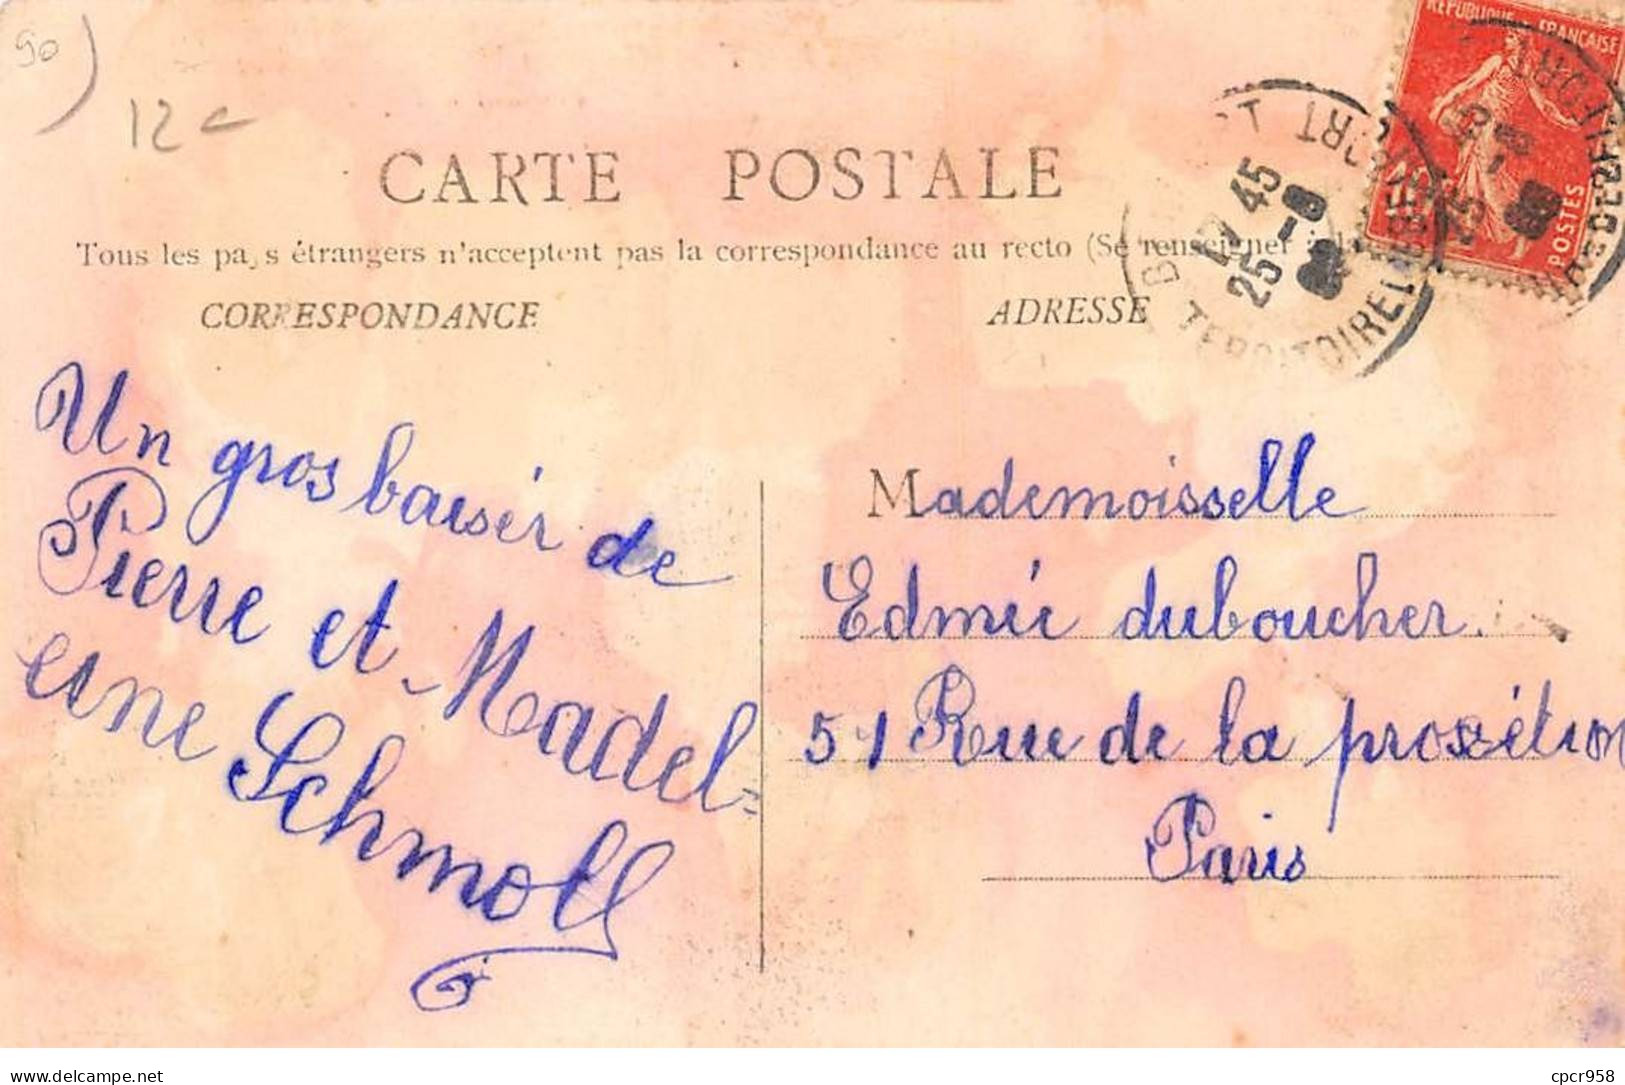 90
12
CARTE POSTALE
Tous les pays étrangers n'acceptent pas la correspondance au recto (Se renseigner à la
CORRESPONDANCE
ADRESSE
RÉPUBLIQUE FRANÇAISE
POSTES
BELFORT
TERRITOIRE
45
25 - 8
Un gros baiser de
Pierre et Madel=
eine Schmoll
Mademoisselle
Edmée duboucher.
51 Rue de la
Paris
delcampe.net
cpcr958